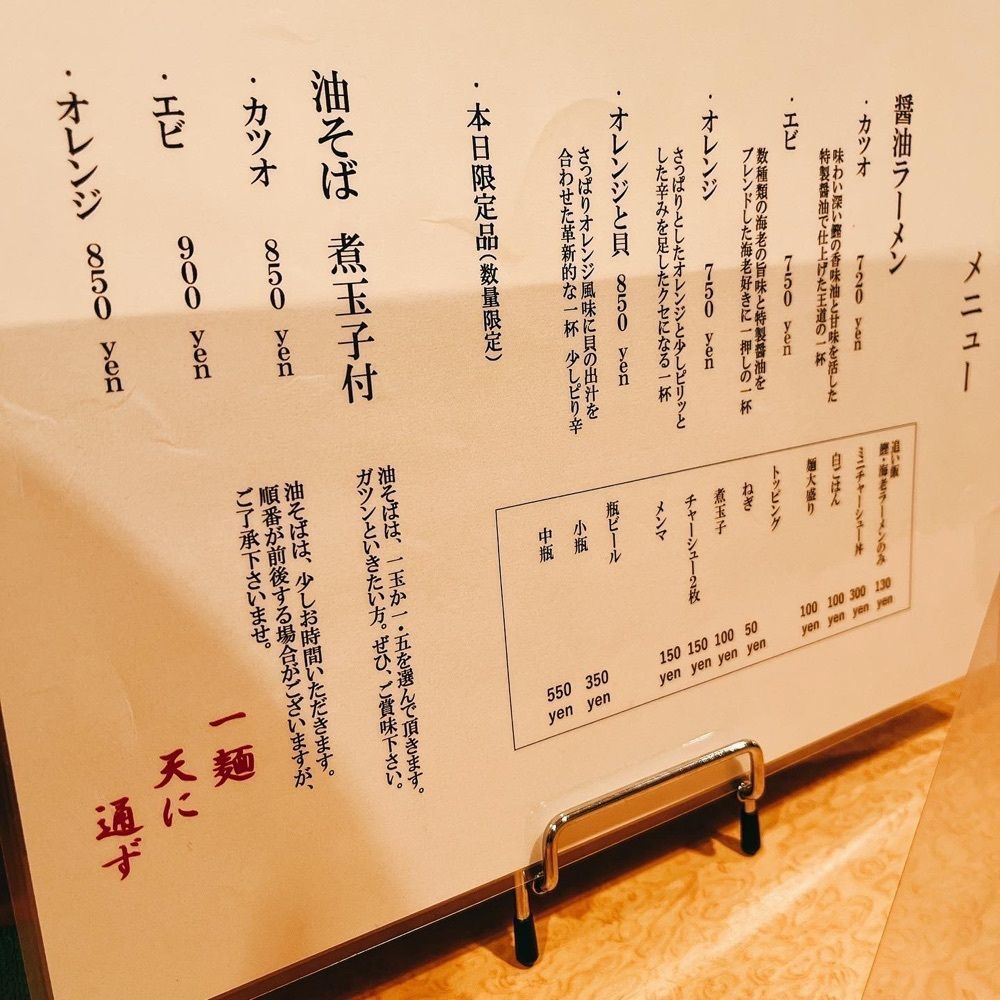 メニュー
醤油ラーメン
・カツオ 720 yen
味わい深い鰹の香味油と甘味を活した
特製醤油で仕上げた王道の一杯
・エビ 750 yen
数種類の海老の旨味と特製醤油を
ブレンドした海老好きに一押しの一杯
・オレンジ 750 yen
さっぱりとしたオレンジと少しピリッと
した辛みを足したクセになる一杯
・オレンジと貝 850 yen
さっぱりオレンジ風味に貝の出汁を
合わせた革新的な一杯 少しピリ辛
・本日限定品(数量限定)
油そば 煮玉子付
・カツオ 850 yen
・エビ 900 yen
・オレンジ 850 yen
追い飯
鰹・海老ラーメンのみ 130 yen
ミニチャーシュー丼 300 yen
白ごはん 100 yen
麺大盛り 100 yen
トッピング
ねぎ 50 yen
煮玉子 100 yen
チャーシュー2枚 150 yen
メンマ 150 yen
瓶ビール
小瓶 350 yen
中瓶 550 yen
油そばは、一玉か一・五を選んで頂きます。
ガツンといきたい方。ぜひ、ご賞味下さい。
油そばは、少しお時間いただきます。
順番が前後する場合がございますが、
ご了承下さいませ。
一麺
天に
通ず